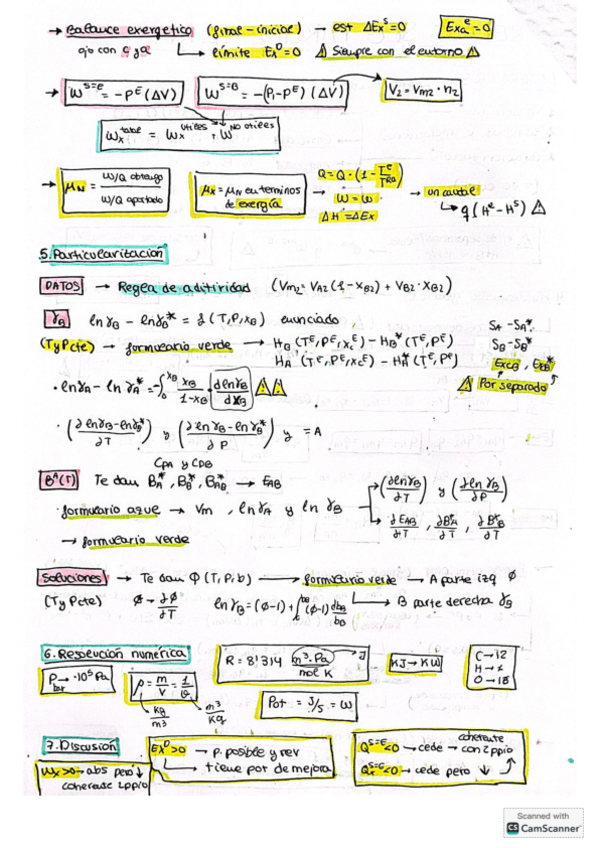 → Balance exergetico (final - inicial) → est ΔEx^s = 0   Exa^e = 0
ojo con c y a   ↳ límite Ex^D = 0   ⚠ Siempre con el entorno ⚠
→ W^{s=E} = -P^E (ΔV)   W^{s=B} = -(P_1 - P^E)(ΔV)   V_2 = V_{m2} · n_2
W_x^{total} = W_x^{utiles} + W^{No utiles}
→ μ_N = W/Q obtengo / W/Q aportado   μ_x = μ_N en terminos de exergía → Q = Q·(1 - T^e/T_{RA})   W = W   ΔH = ΔEx → un caudal ↳ q (H^e - H^s) ⚠
5. Particularización
DATOS → Regla de aditividad (V_{m2} = V_{A2} (1 - x_{B2}) + V_{B2} · x_{B2})
γ_B   ln γ_B - ln γ_B^* = f (T, P, x_B) enunciado   S_A - S_A^*
(T y P cte) → formulario verde → H_B (T^E, P^E, x_C^E) - H_B^* (T^E, P^E)   S_B - S_B^*
H_A (T^E, P^E, x_C^E) - H_A^* (T^E, P^E)
⚠ Por separado
· ln γ_A - ln γ_A^* = -∫_0^{x_B} x_B/(1 - x_B) · d ln γ_B/d x_B ⚠⚠
· (∂ ln γ_B - ln γ_B^*/∂T) y (∂ ln γ_B - ln γ_B^*/∂P) y = A
C_{PA} y C_{PB}
B^A(T)   Te dan B_A^*, B_B^*, B_{AB}^* → E_{AB}   → (∂ ln γ_B/∂T) y (∂ ln γ_B/∂P)
· formulario agua → V_m, ln γ_A y ln γ_B   → ∂E_{AB}/∂T, ∂B_A^*/∂T, ∂B_B^*/∂T
→ formulario verde
Soluciones → Te dan Φ (T, P, b) → formulario verde → A parte izq ϕ
(T y P cte)   Φ → ∂Φ/∂T   ln γ_B = (ϕ-1) + ∫_0^{b_B} (ϕ-1) db_B/b_B   ↳ B parte derecha γ_B
6. Resolución numérica   R = 8'314 m³·Pa/mol K → J   KJ → KW   C → 12
P → ·10⁵ Pa   ρ = m/V = 1/v   H → 1
bar   kg/m³   m³/Kg   Pot = J/s = W   O → 16
7. Discusión   Ex^D > 0 → p. posible y rev   Q^{s=E} < 0 → cede → coherente con 2ppio
W_x > 0 → abs pero ↓   ↳ tiene pot de mejora   Q_x^{s=E} < 0 → cede pero ↓
coherente 2ppio
Scanned with
CS CamScanner